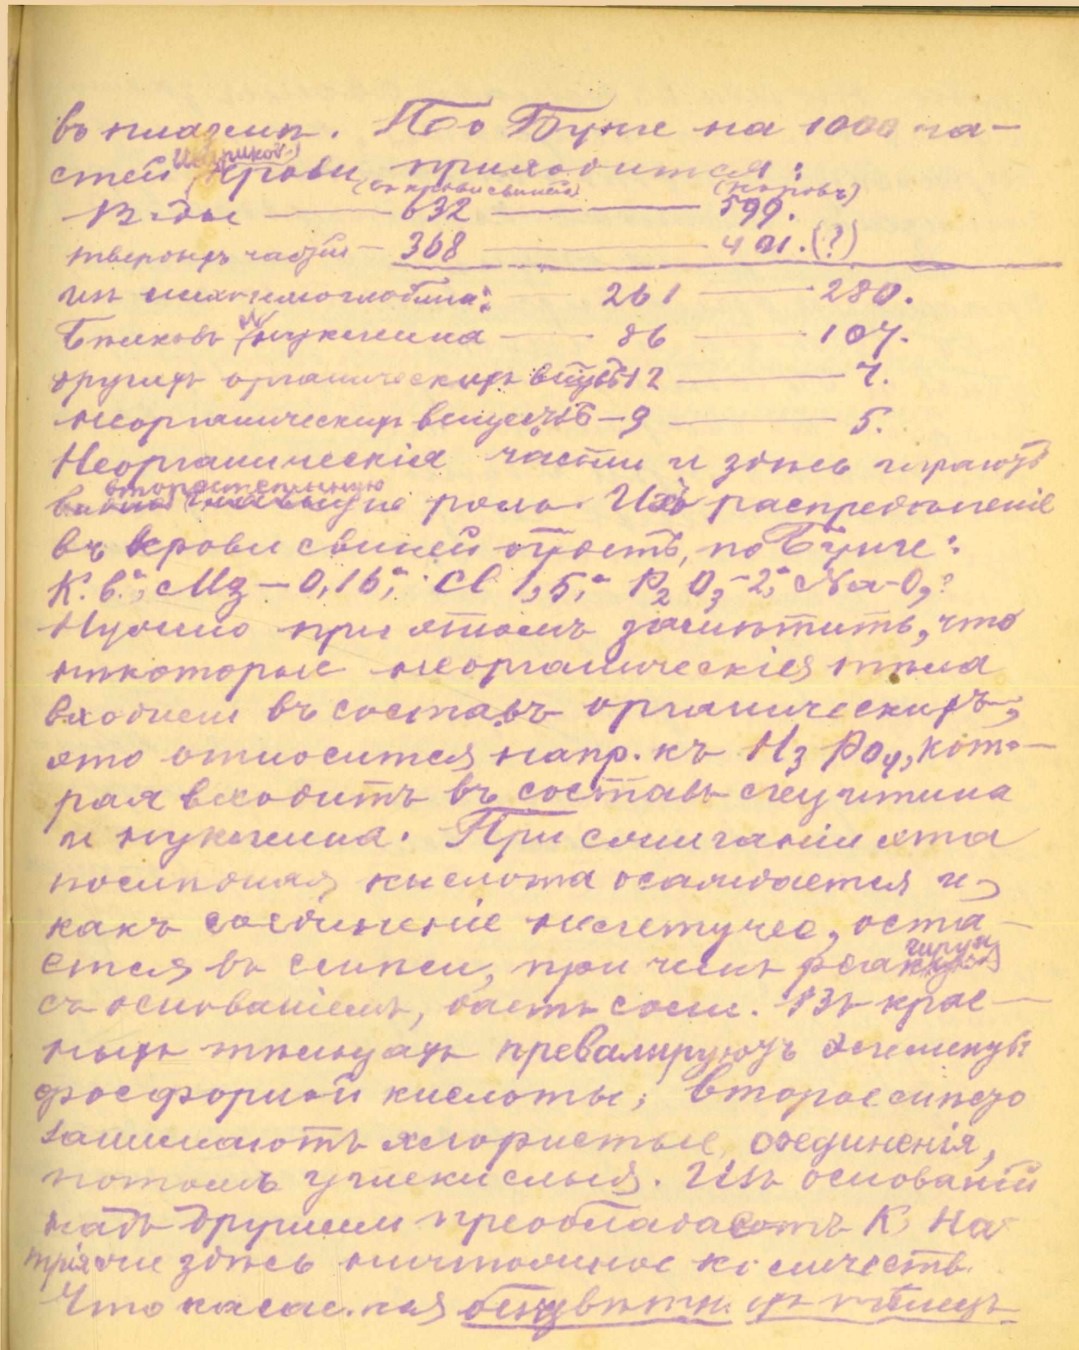 въ плазмѣ. По Бунге на 1000 ча-
стей крови приходится:
(въ крови свиней) (коровъ)
Воды — 632 — 599.
твердыхъ частей — 368 — 401. (?)
изъ нихъ гемоглобина: — 261 — 280.
Бѣлковъ и нуклеина — 86 — 107.
другихъ органическихъ веществъ 12 — 7.
неорганическихъ веществъ — 9 — 5.
Неорганическія части и здѣсь играютъ
второстепенную
роль. Ихъ распредѣленіе
въ крови свиней будетъ, по Бунге:
Mg — 0,16; Cl 1,5;
Нужно при этомъ замѣтить, что
нѣкоторые неорганическія тѣла
входили въ составъ органическихъ;
это относится напр. къ H3 PO4, кото-
рая входитъ въ составъ лецитина
и нуклеина. При сжиганіи эта
послѣдняя кислота осаждается и,
какъ соединеніе нелетучее, оста-
ется въ смѣси, при чемъ реагируя
съ основаніемъ, даетъ соли. Въ крас-
ныхъ тѣльцахъ превалируютъ элементы
фосфорной кислоты; второе мѣсто
занимаютъ хлористые соединенія,
потомъ углекислыя. Изъ основаній
надъ другими преобладаетъ K, На
трія же здѣсь ничтожное количеств.
Что касается безцвѣтн. тѣлецъ